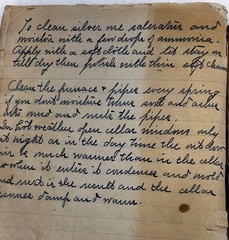 To clean silver use saleratus and
moisten with a few drops of ammonia.
Apply with a soft cloth and let stay on
till dry then polish with thin soft
Clean the furnace + piper every spring
if you dont moisture turns soot and ashes
into mud and rusts the pipes.
In hot weather open cellar windows only
at night as in the day time the outdoor
air is much warmer than in the cellar
so when it enters it condenses and mold
and rust is the result and the cellar
damp and warm.